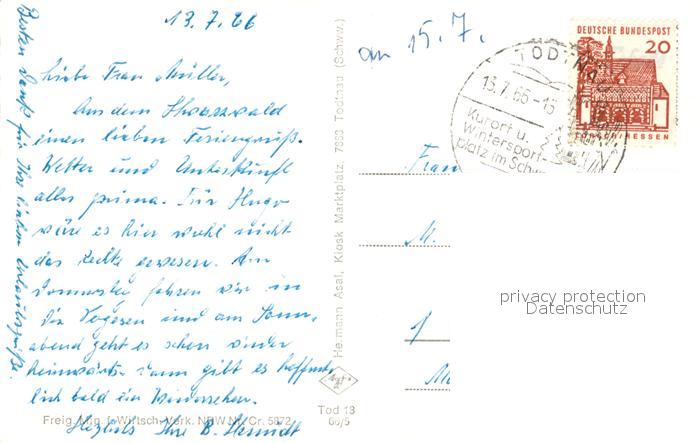 13.7.66
Liebe Frau Müller,
Aus dem Schwarzwald
einen lieben Feriengruß.
Wetter und Unterkunft
alles prima. Für Hugo
wäre es hier wohl nicht
das Rechte gewesen. Am
Donnerstag fahren wir in
die Vogesen und am Sonn-
abend geht es schon wieder
heimwärts. Dann gibt es hoffent-
lich bald ein Wiedersehen.
Herzlichst Ihre B.
Besten Dank für Ihre lieben Urlaubsgrüße.
Freig. Min. f. Wirtsch. Verk. NRW Nr. Cr. 5972
Hermann Asal, Kiosk Marktplatz, 7868 Todtnau (Schww.)
Tod 13
66/5
an 15.7.
DEUTSCHE BUNDESPOST
20
LORSCH/HESSEN
TODTNAU
13.7.66-16
Kurort u.
Wintersport-
platz im Schw
Frau
M.
privacy protection
Datenschutz